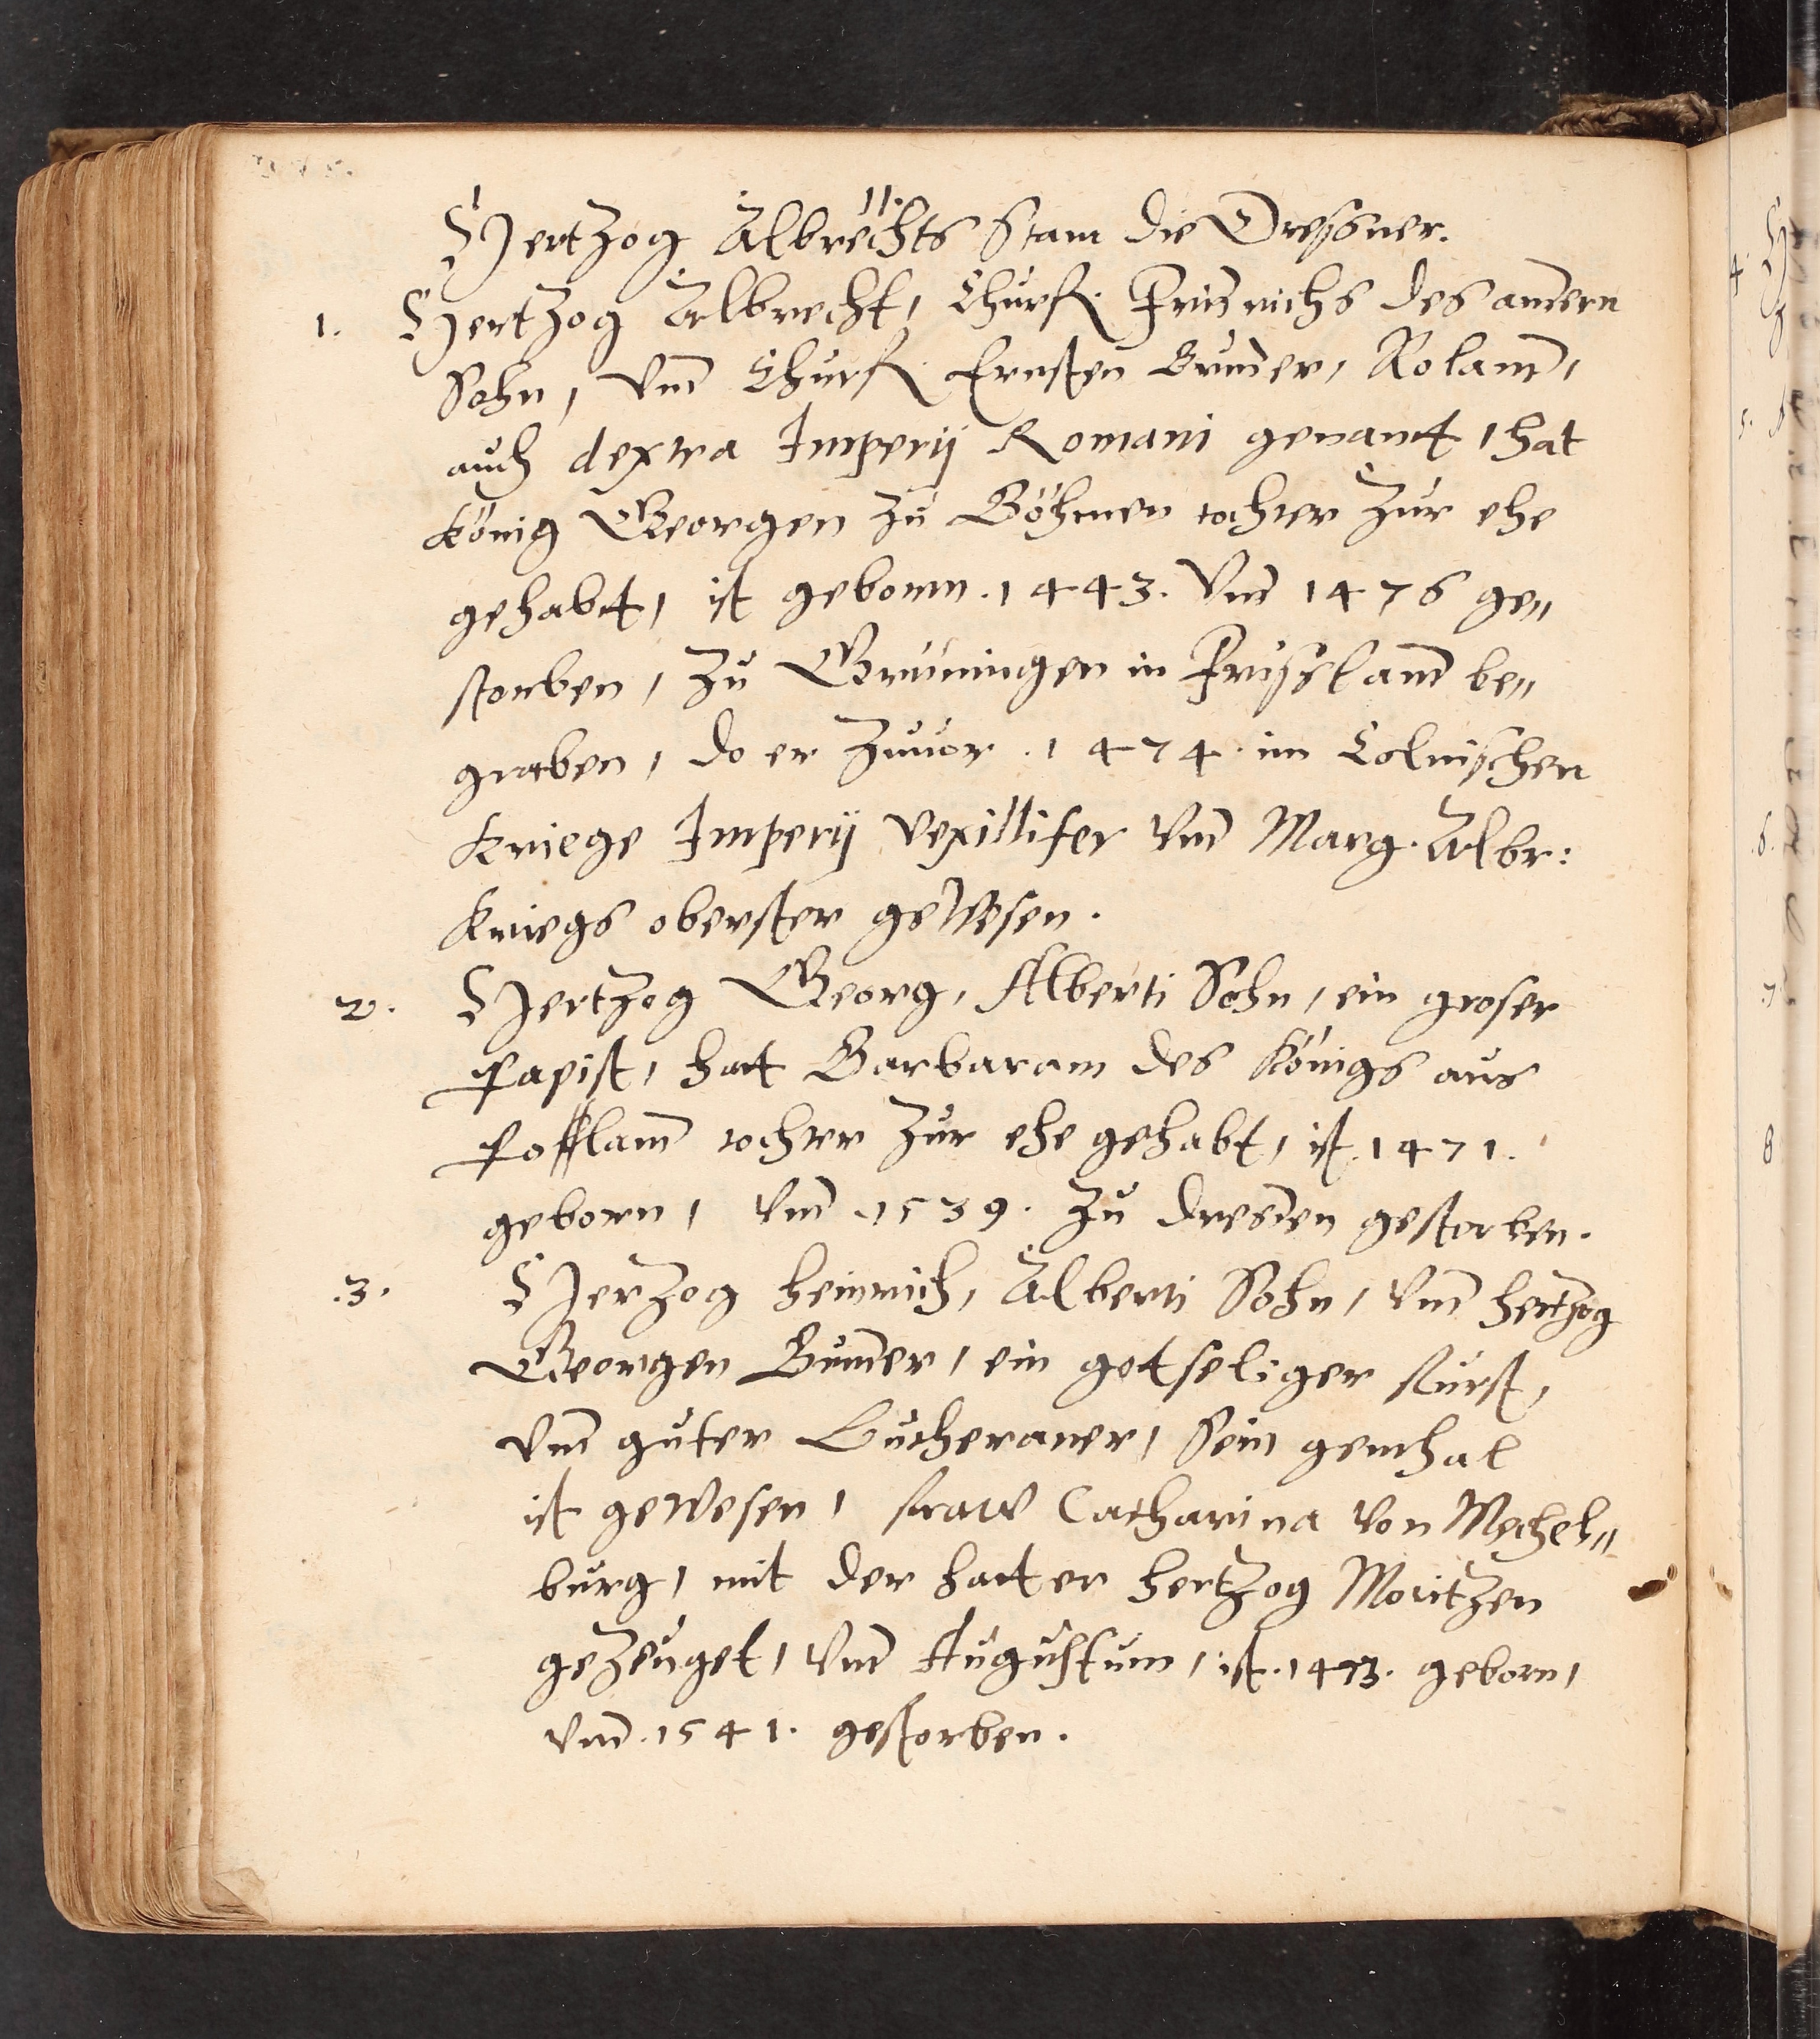 11.
Hertzog Albrechts Stam die Dressner.
1. Hertzog Albrecht, Churf. Fridrichs des andern
Sohn, vnd Churf. Ernsten Bruder, Roland,
auch dextra Imperij Romani genant, hat
König Georgen zu Böhmen tochter zur ehe
gehabt, ist geborn .1443. vnd 1476 ge„
storben, zu Gruningen in Frisslannd be„
graben, do er zuuor .1474. im Colnischen
Kriege Imperij vexillifer vnd Marg. Albr:
Kriegs oberster gewesen.
2. Hertzog Georg, Alberti Sohn, ein groser
Papist, hatt Barbaram des Königs aus
Pohlannd tochter zur ehe gehabt, ist .1471.
geborn, vnd .1539. zu dresden gestorben.
.3. Herzog Heinrich, Alberti Sohn, vnd hertzog
Georgen Bruder, ein gotseliger furst,
vnd guter Lutheraner, Sein gemhal
ist gewesen, fraw Catharina von Mechel„
burg, mit der hatt er hertzog Moritzen
gezeuget, vnd Augustum, ist .1473. geborn,
vnd .1541. gestorben.
4.
5.
6.
7.
8